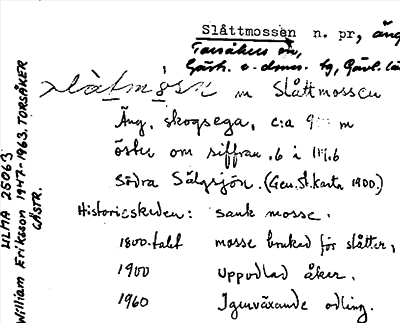 Slåttmossen n. pr, äng
Torsåkers sn,
Gästr. ö. dmrs. tg, Gävl. lä
slàtmósn m Slåttmossen
Äng, skogsega, c:a 9 m
öster om siffran .6 i 111,6
Södra Sälgsjön. (Gen.St.Karta 1900.)
Historieskeden: sank mosse.
1800-talet mosse brukad för slåtter,
1900 uppodlad åker.
1960 Igenväxande odling.
ULMA 25063
William Eriksson 1947-1963. TORSÅKER
GÄSTR.